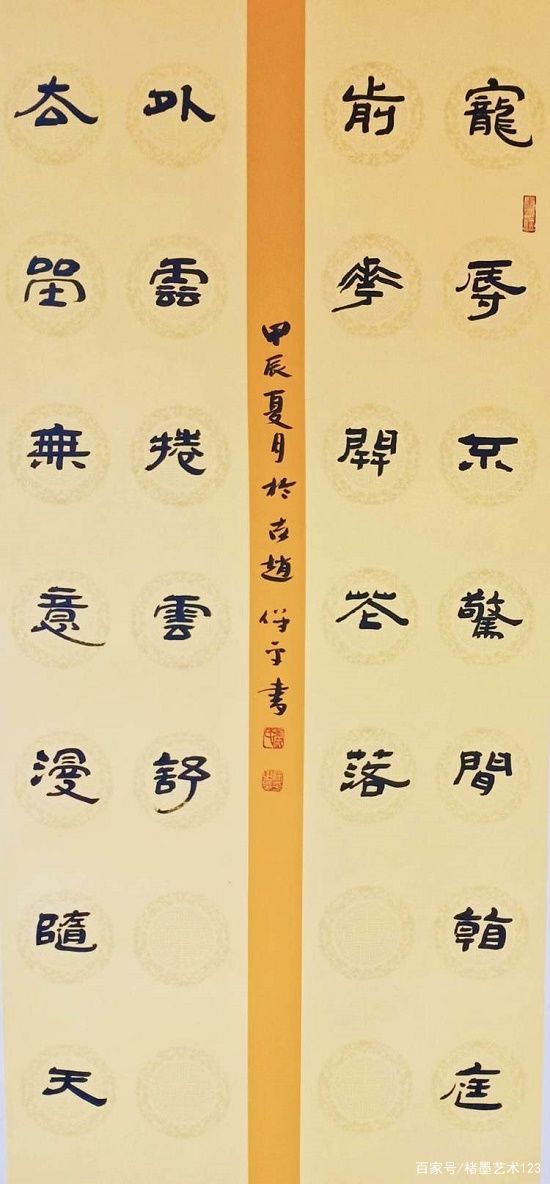 寵辱不驚閒看庭
前花開花落
去留無意漫隨天
外雲捲雲舒
甲辰夏月於古趙平書
百家号/楮墨艺术123